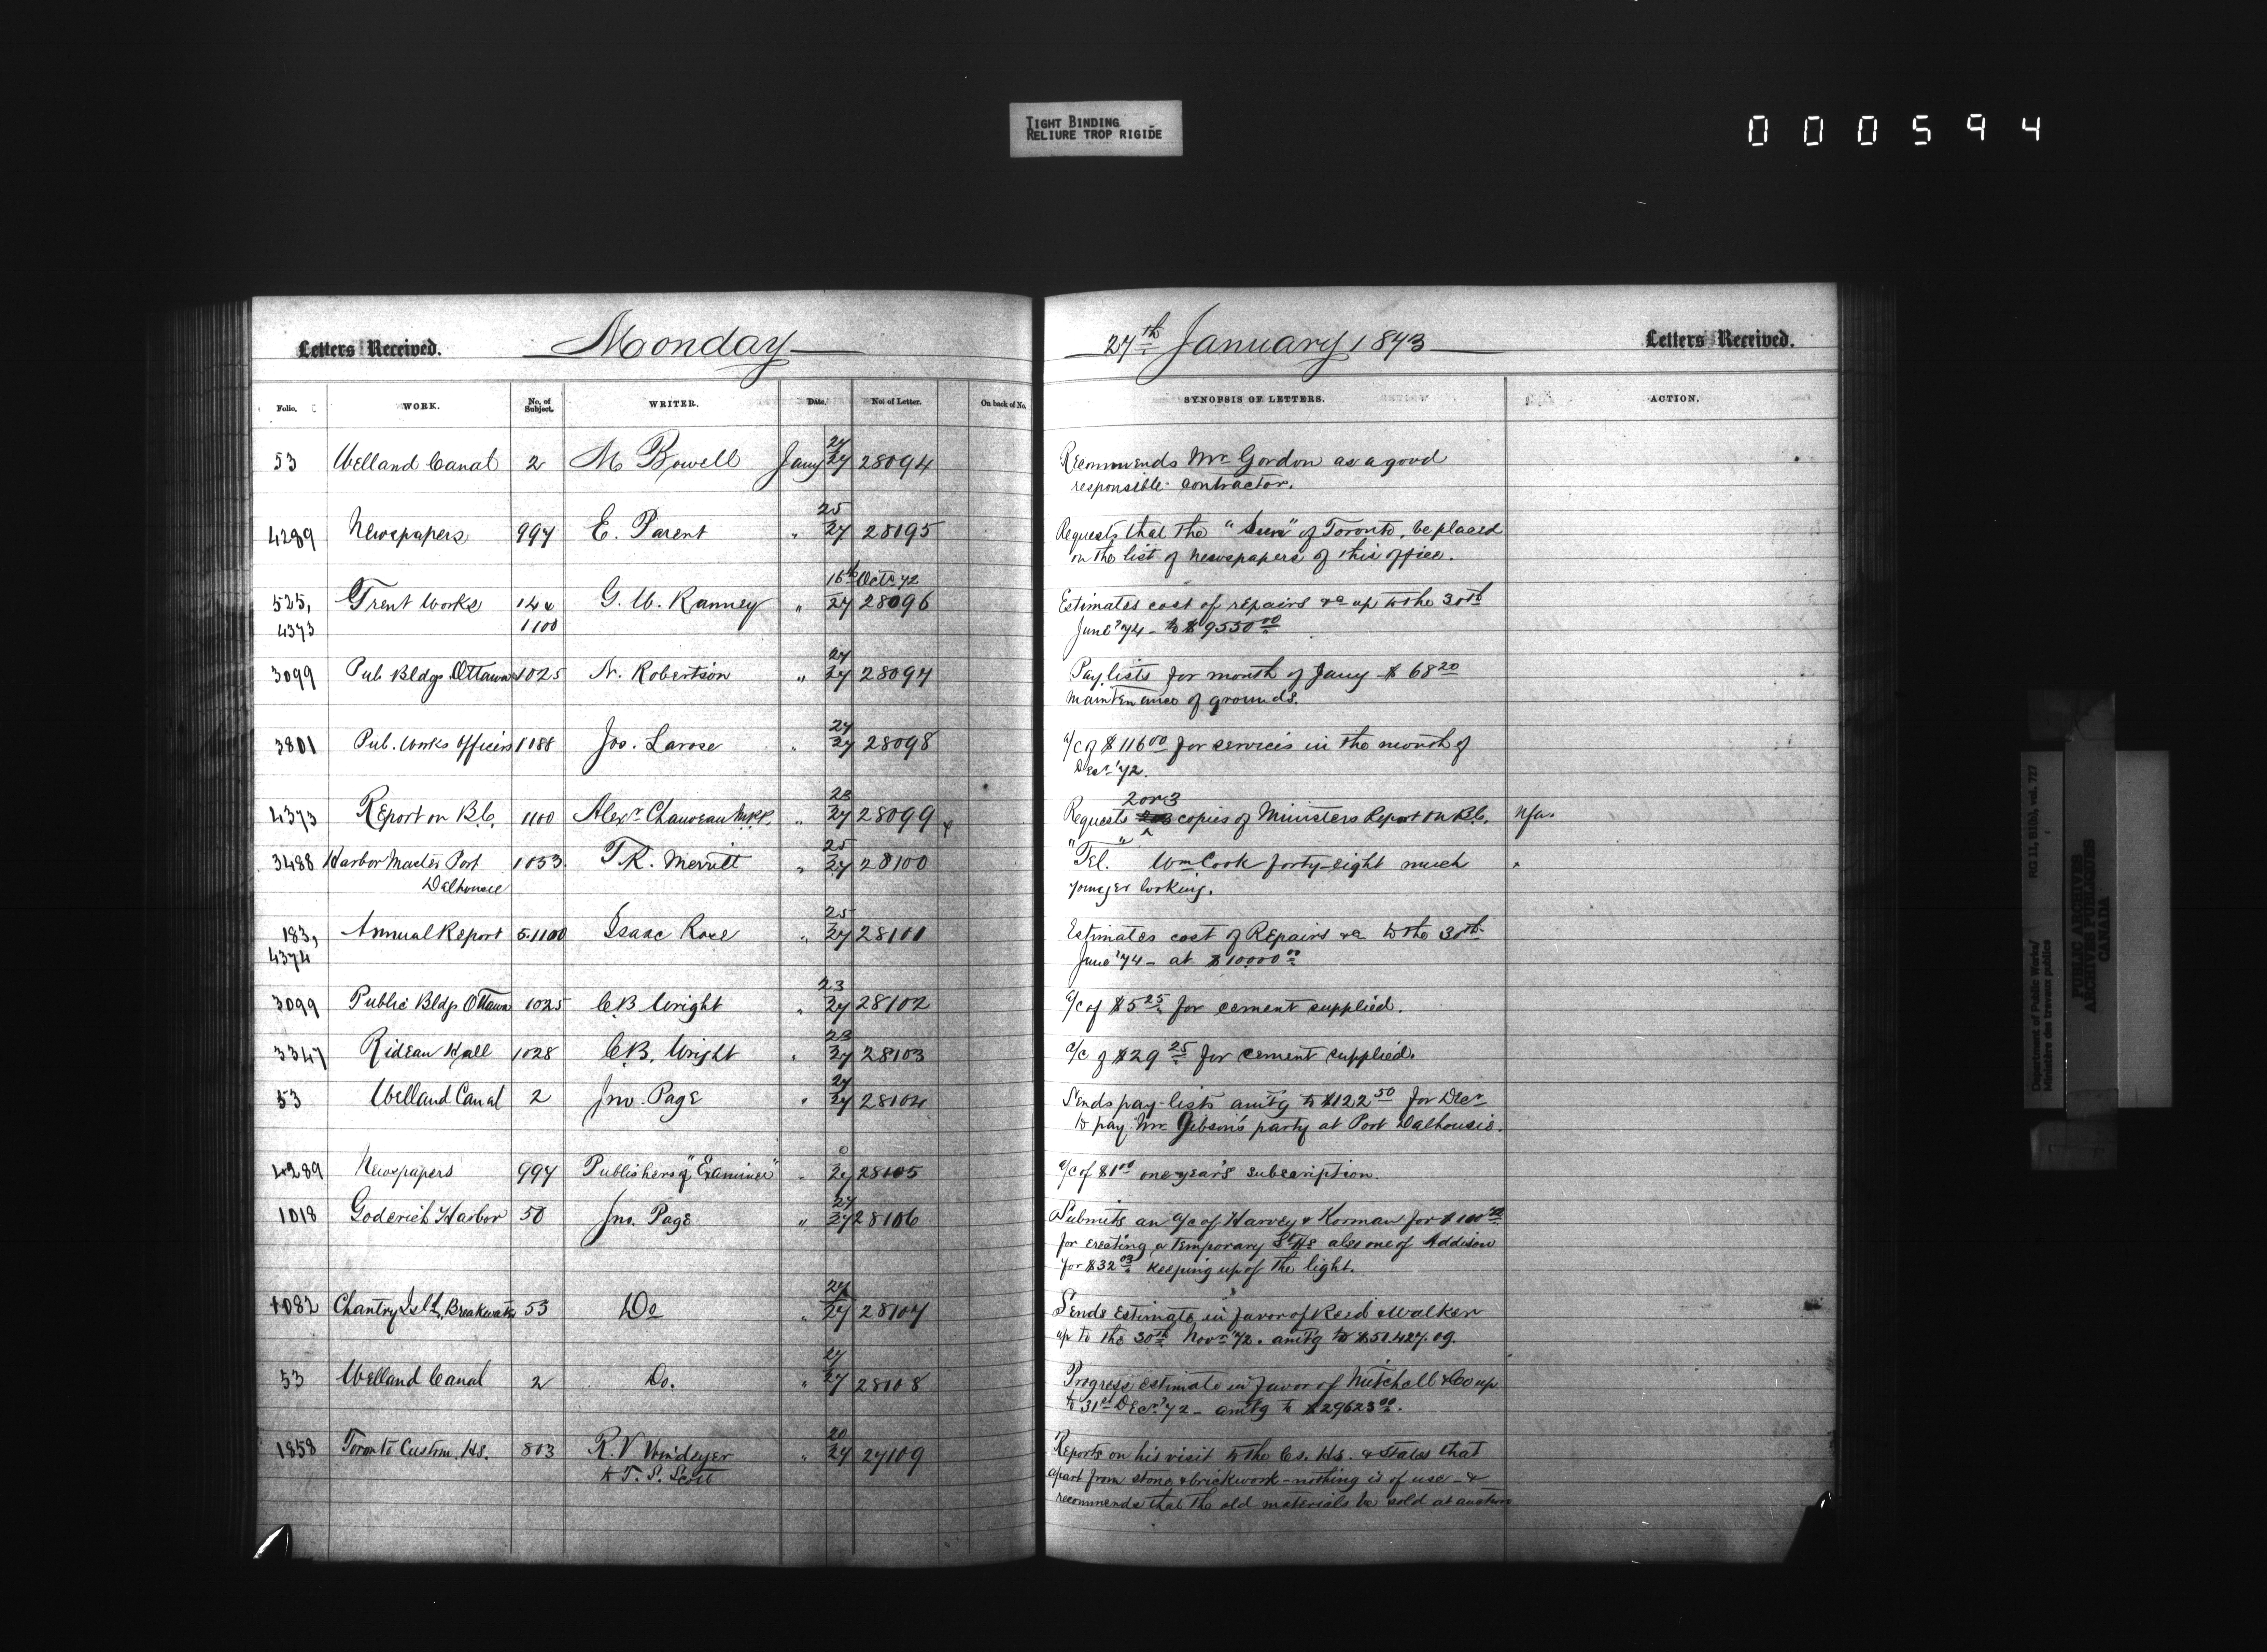 TIGHT BINDING
RELIURE TROP RIGIDE
000594
Letters Received. Monday
Folio. WORK. No. of Subject. WRITER. Date. No. of Letter. On back of No.
53 Welland Canal 2 M Bowell Jany 27/27 28094
4289 Newspapers 997 E. Parent " 25/27 28195
16th Octr 72
525, Trent Works 144 G. W. Ranney " 27 28096
4373 1100
3099 Pub Bldgs Ottawa 1025 N. Robertson " 27/27 28097
3801 Pub. Works Officers 1088 Jos. Larose " 27/27 28098
4373 Report on B.C. 1100 Alexr Chauveau M.P.P. " 23/27 28099
3488 Harbor Master Port 1053. T. R. Merritt " 25/27 28100
Dalhousie
183, Annual Report 5.1100 Isaac Rose " 25/27 28101
4374
3099 Public Bldgs Ottawa 1025 C B Wright " 23/27 28102
3347 Rideau Hall 1028 C B. Wright " 23/27 28103
53 Welland Canal 2 Jno. Page " 27/27 28104
4289 Newspapers 997 Publishers of "Examiner" " 0/27 28105
1018 Goderich Harbor 50 Jno. Page " 27/27 28106
1082 Chantry Isld, Breakwater 53 Do " 27/27 28107
53 Welland Canal 2 Do. " 27/27 28108
1858 Toronto Custom. Hs. 803 R. V Windeyer " 20/27 27109
to T. S. Scott
27th January 1873 Letters Received.
SYNOPSIS OF LETTERS. ACTION.
Recommends Mr Gordon as a good
responsible contractor.
Requests that the "Sun" of Toronto, be placed
on the list of Newspapers of this office.
Estimates cost of repairs &c up to the 30th
June '74 - to $9550 00
Pay lists for month of Jany $ 68 20
maintenance of grounds.
a/c of $116 00 for services in the month of
Decr '72.
2 or 3
Requests copies of Ministers Report on B.C. Nfa.
"Tel." Wm Cook forty-eight much "
younger looking.
Estimates cost of Repairs &c to the 30th
June '74 - at $10000 00
a/c of $5 25 for cement supplied.
a/c of $29 25 for cement supplied.
Sends pay-lists amtg to $122 50 for Decr
to pay Mr Gibson's party at Port Dalhousie.
a/c of $1 00 one year's subscription.
Submits an a/c of Harvey & Korman for
for erecting a temporary Lt Hs also one of Addison
for $32 03 keeping up of the light.
Sends Estimate in favor of Reid & Walker
up to the 30th Novr '72. amtg to $50.427.09.
Progress estimate in favor of Mitchell & Co up
to 31st Decr '72 - amtg to $29623 00.
Reports on his visit to the Cs. Hs. & States that
apart from stone & brickwork - nothing is of use - &
recommends that the old materials be sold at auction
Department of Public Works/
Ministère des travaux publics
RG 11, B1(b), vol. 727
PUBLIC ARCHIVES
ARCHIVES PUBLIQUES
CANADA